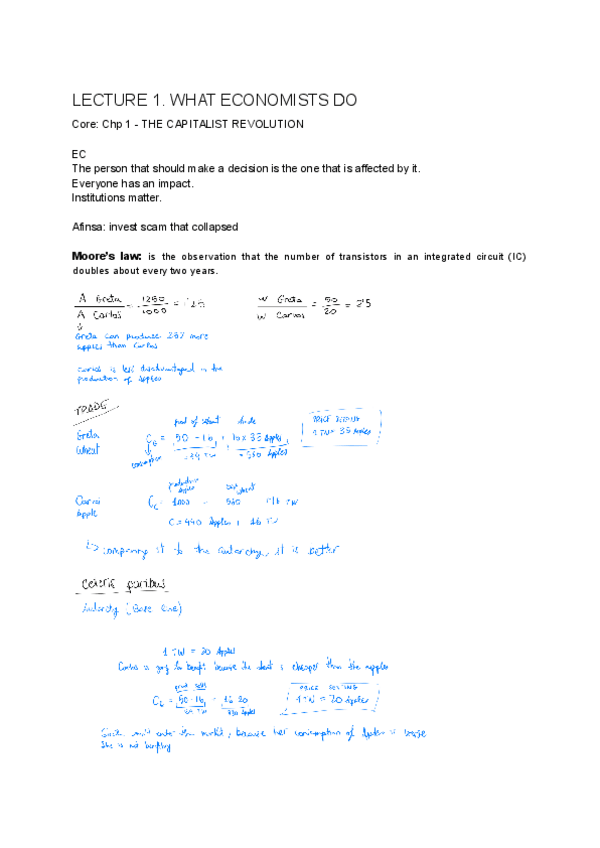 LECTURE 1. WHAT ECONOMISTS DO
Core: Chp 1 - THE CAPITALIST REVOLUTION
EC
The person that should make a decision is the one that is affected by it.
Everyone has an impact.
Institutions matter.
Afinsa: invest scam that collapsed
Moore's law: is the observation that the number of transistors in an integrated circuit (IC)
doubles about every two years.
A Greta / A Carlos = 1250 / 1000 = 1'25
w Greta / w Carlos = 50 / 20 = 2'5
Greta can produce more
apples than Carlos
Carlos is less disadvantaged in the
production of apples
TRADE
Greta
Wheat
consumption
PRICE SETTING
1 TW = 35 Apples
Carlos
Apple
C = 440 Apples, 16 TW
↳ comparing it to the autarchy, it is better
Ceteris paribus
Autarchy (Base line)
1 TW = 20 Apples
Carlos is going to benefit because the is cheaper than the apples
PRICE SETTING
1 TW = 20 Apples
because her consumption of Apples is worse
She is not